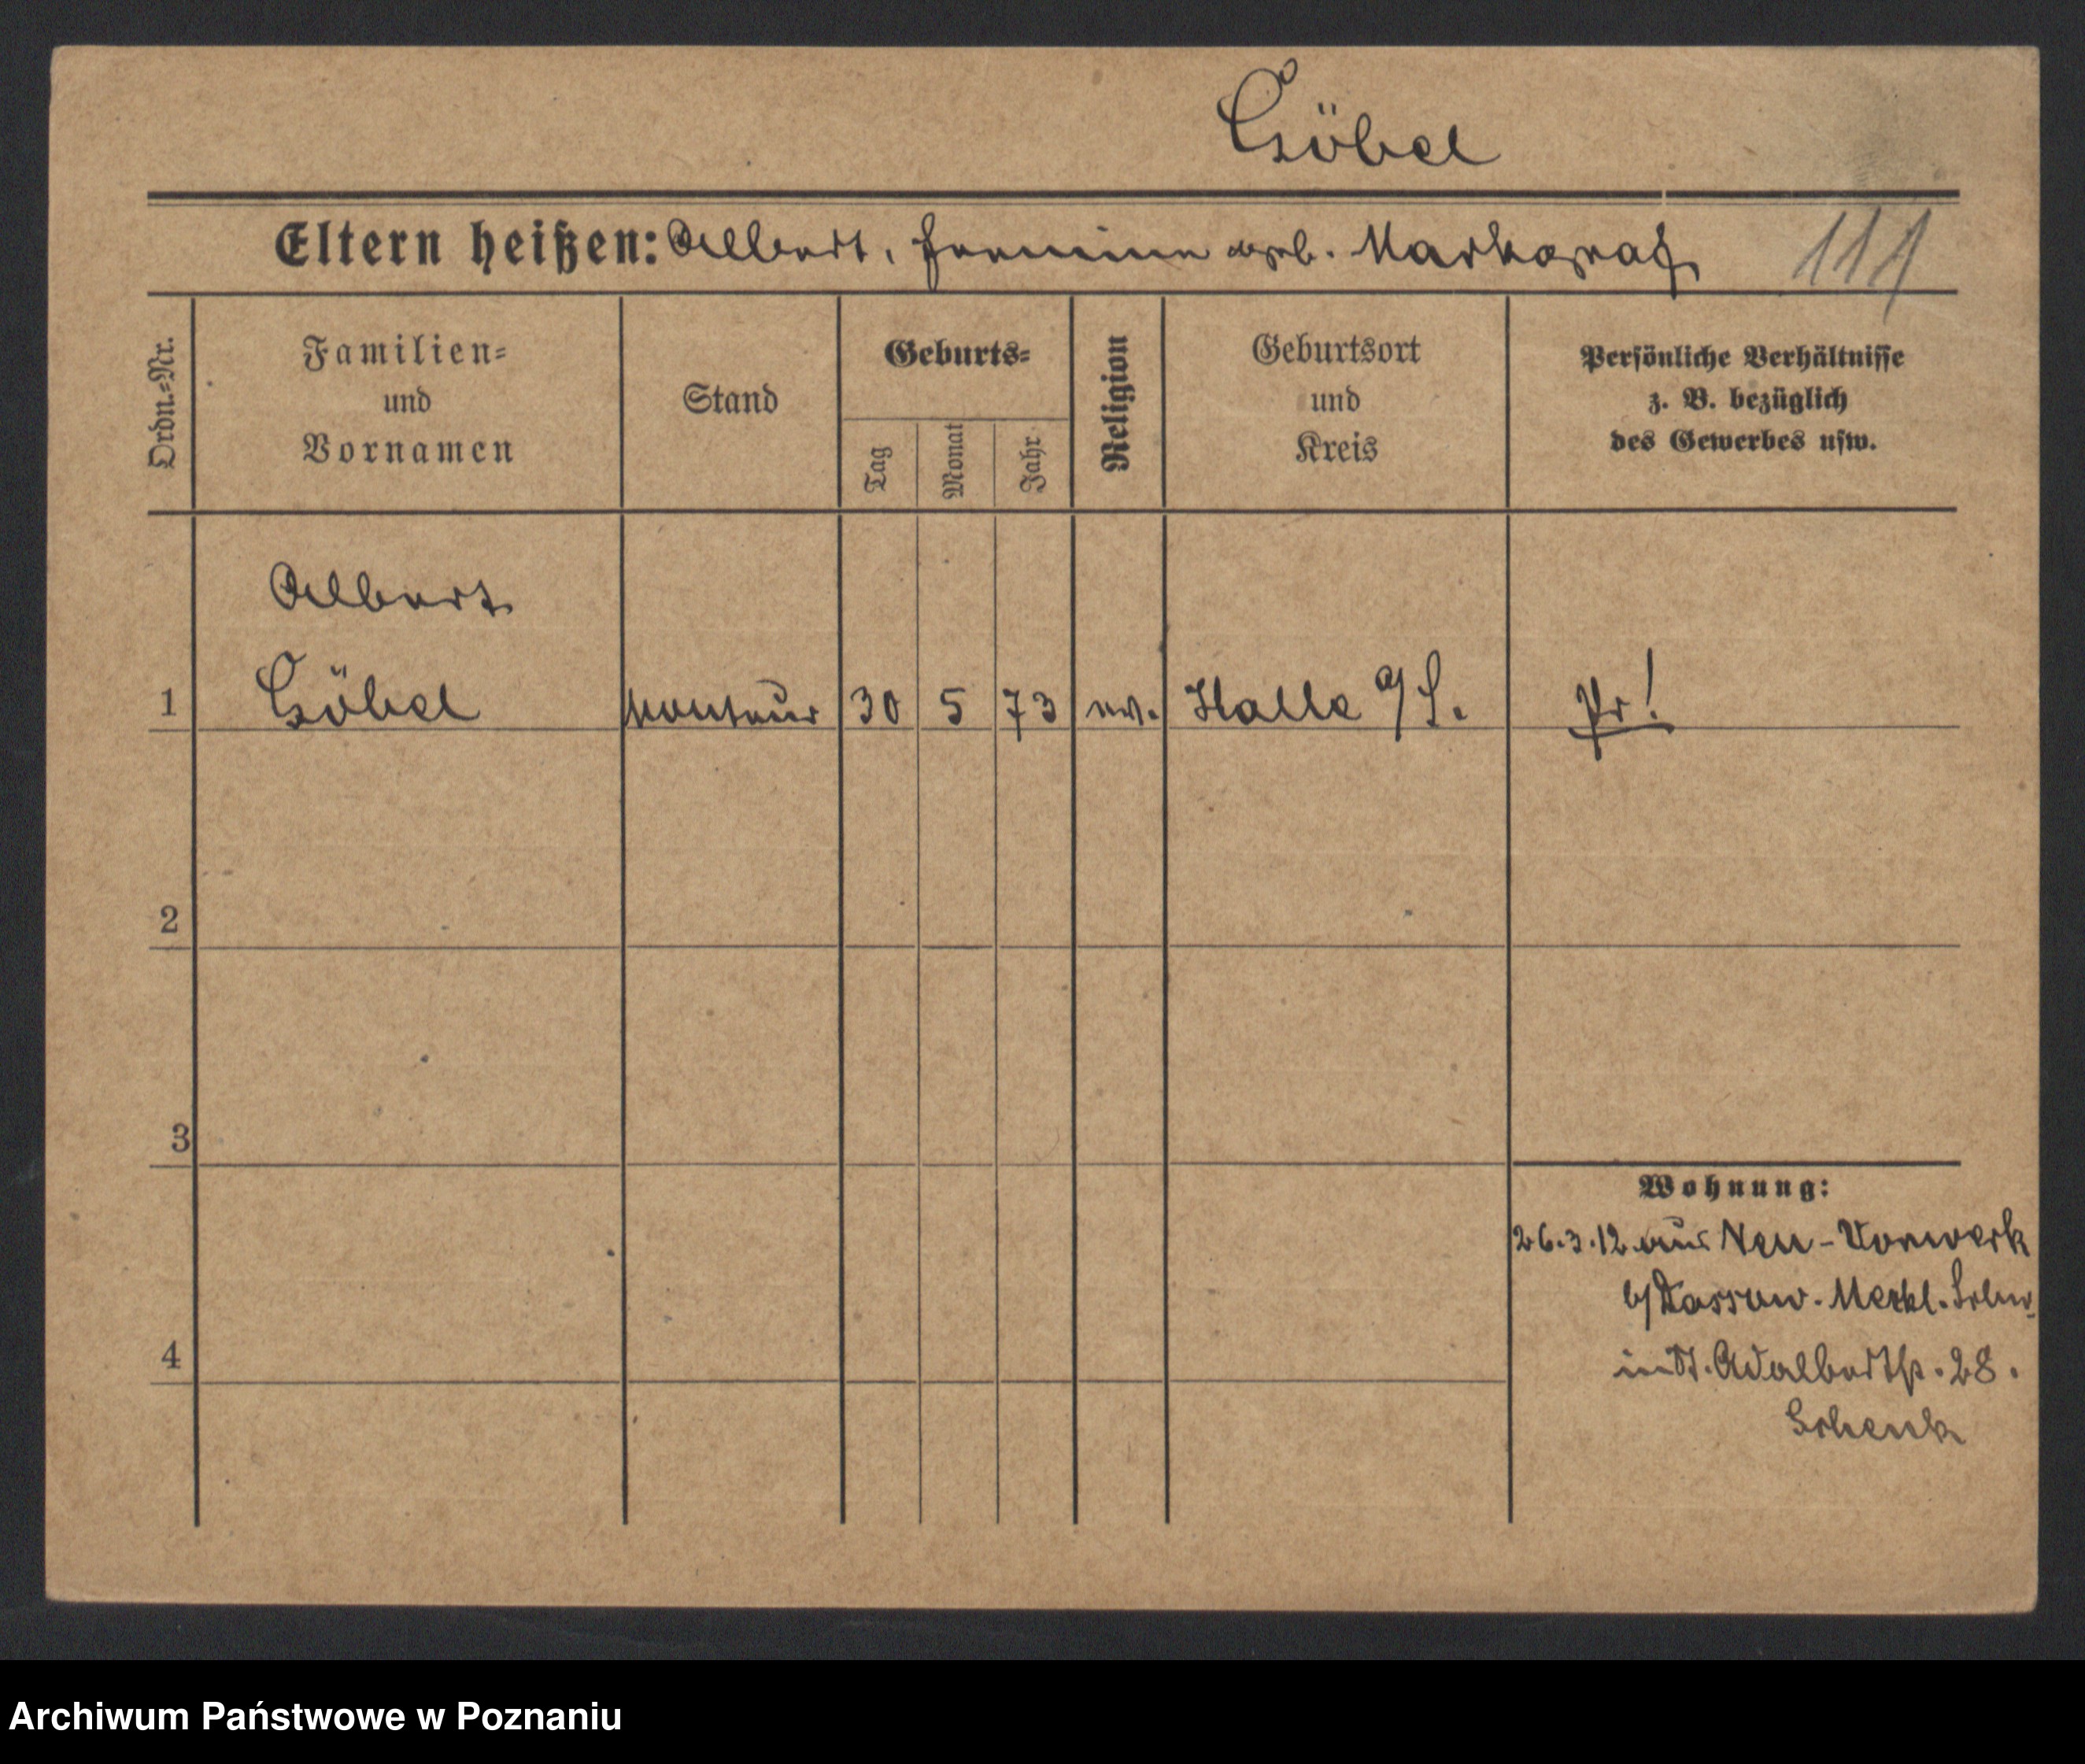 Göbel
Eltern heißen: Albert, Hermine geb. Markgraf
111
Ordn.-Nr.
Familien-
und
Vornamen
Stand
Geburts-
Tag
Monat
Jahr
Religion
Geburtsort
und
Kreis
Persönliche Verhältnisse
z. B. bezüglich
des Gewerbes usw.
Albert
1 Göbel Monteur 30 5 73 ev. Halle a/S. Pr!
2
3
4
Wohnung:
26.3.12 aus Neu-Vorwerk
b/Dassow. Meckl. Schw.
in St. Adalbertstr. 28.
Schenk
Archiwum Państwowe w Poznaniu